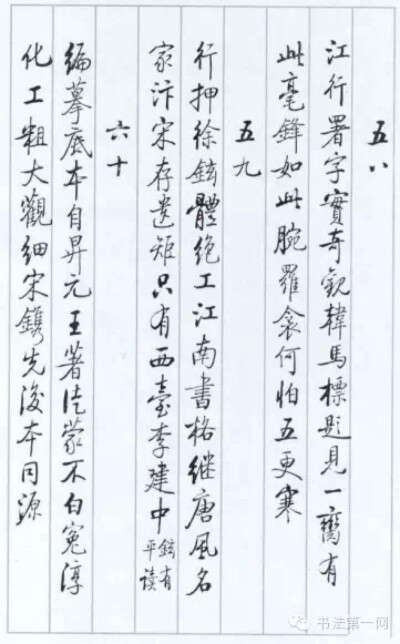 五八
江行署字實奇觀韓馬標題見一臠有
此毫鋒如此腕羅衾何怕五更寒
五九
行押徐鉉體絕工江南書格繼唐風名
家汴宋存遺矩只有西臺李建中鉉有平讀
六十
編摹底本自昇元王著徒蒙不白冤淳
化工粗大觀細宋鐫先後本同源
书法第一网